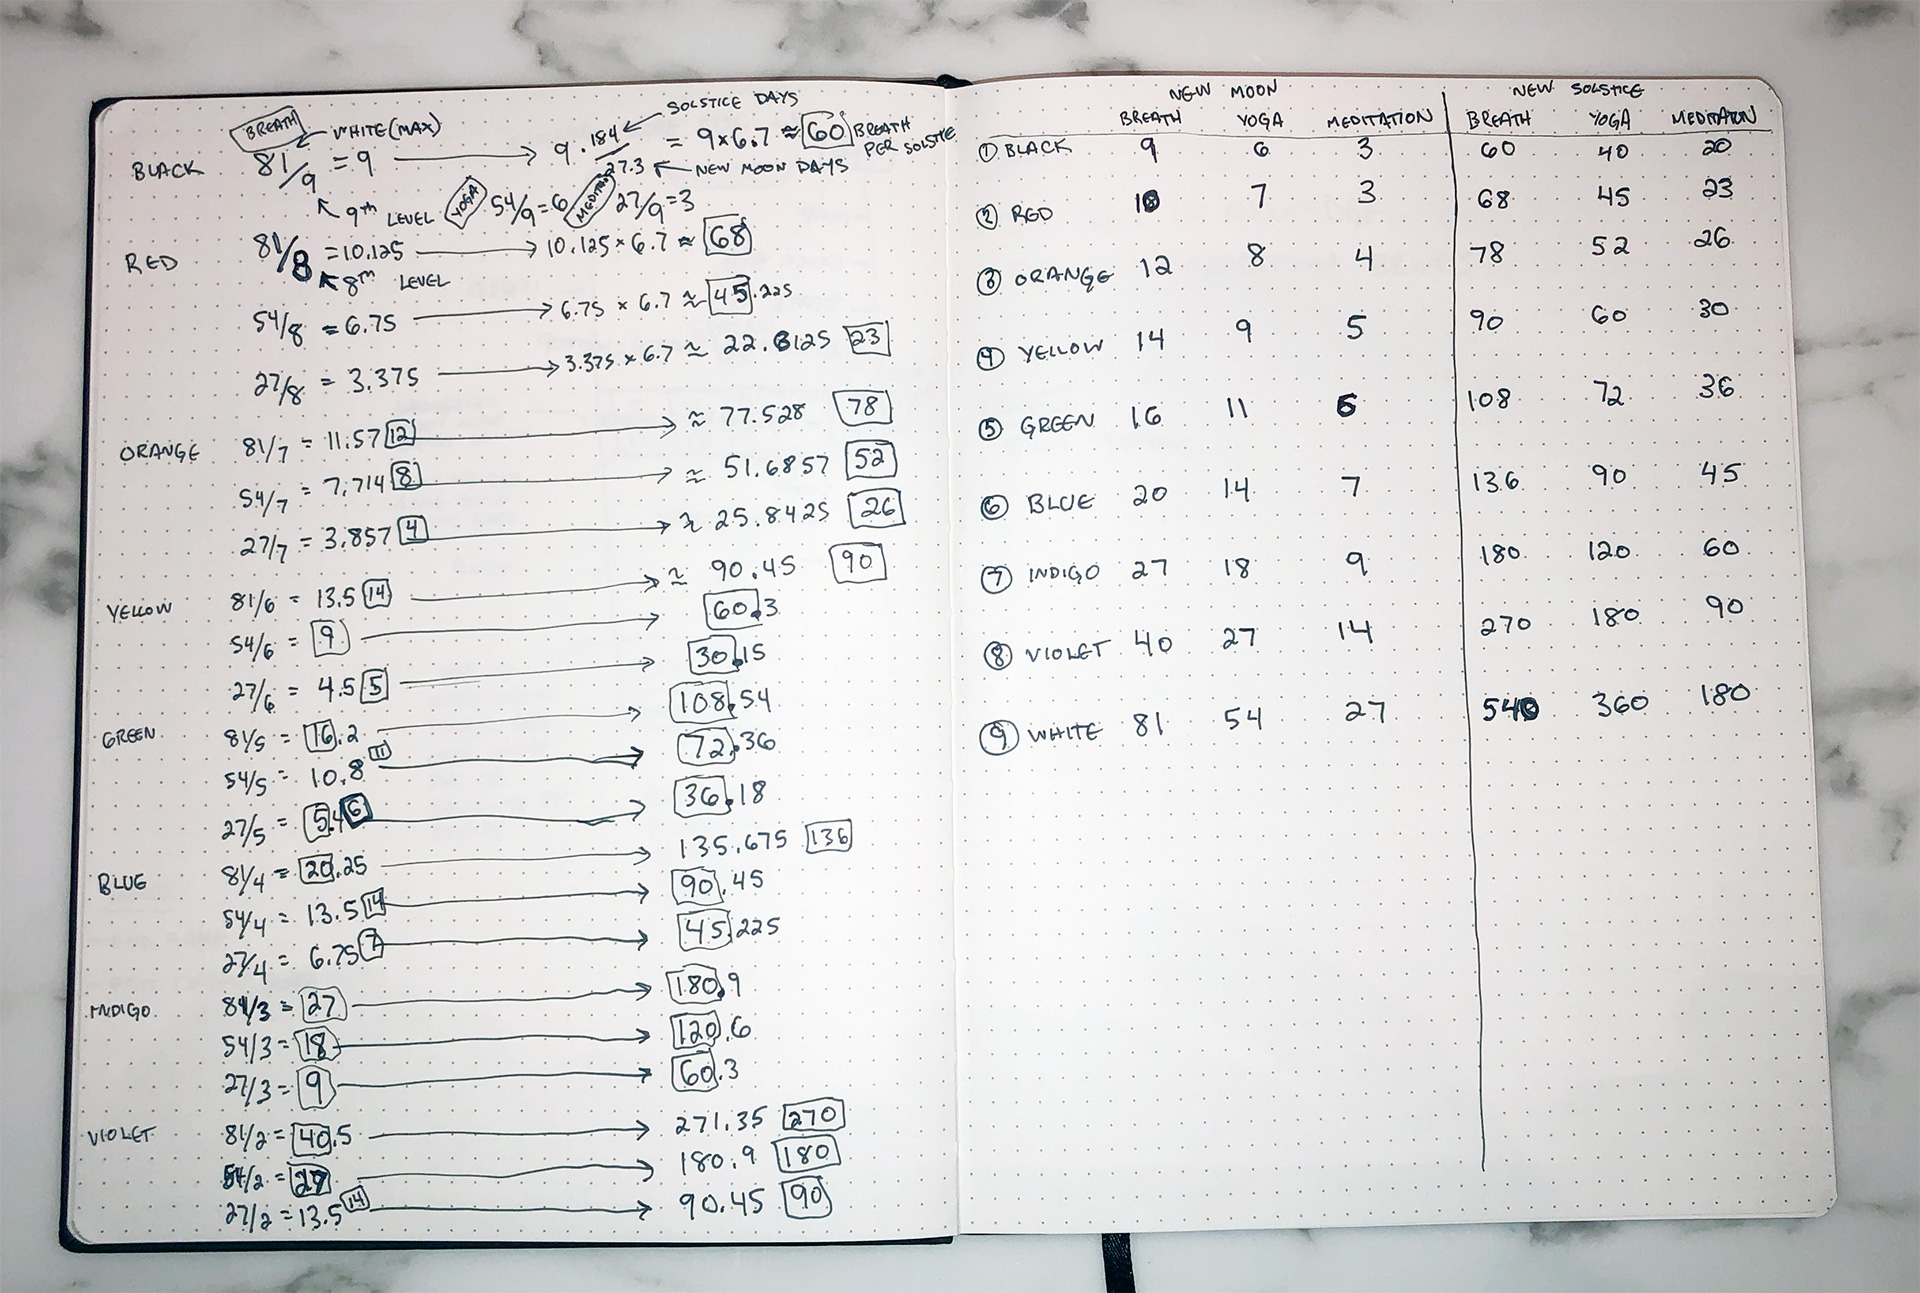 SOLSTICE DAYS
BREATH WHITE (MAX)
BLACK 81/9 = 9 → 9 · 184/27.3 = 9 × 6.7 ≈ 60 BREATH PER SOLSTICE
NEW MOON DAYS
9TH LEVEL YOGA 54/9 = 6 27/9 = 3
RED 81/8 = 10.125 → 10.125 × 6.7 ≈ 68
8TH LEVEL
54/8 = 6.75 → 6.75 × 6.7 ≈ 45.225
27/8 = 3.375 → 3.375 × 6.7 ≈ 22.6125 23
ORANGE 81/7 = 11.57 12 → ≈ 77.528 78
54/7 = 7.714 8 → ≈ 51.6857 52
27/7 = 3.857 4 → ≈ 25.8425 26
YELLOW 81/6 = 13.5 14 → ≈ 90.45 90
54/6 = 9 → 60.3
27/6 = 4.5 5 → 30.15
GREEN 81/5 = 16.2 → 108.54
54/5 = 10.8 11 → 72.36
27/5 = 5.4 6 → 36.18
BLUE 81/4 = 20.25 → 135.675 136
54/4 = 13.5 14 → 90.45
27/4 = 6.75 7 → 45.225
INDIGO 81/3 = 27 → 180.9
54/3 = 18 → 120.6
27/3 = 9 → 60.3
VIOLET 81/2 = 40.5 → 271.35 270
54/2 = 27 → 180.9 180
27/2 = 13.5 14 → 90.45 90
NEW MOON NEW SOLSTICE
BREATH YOGA MEDITATION BREATH YOGA MEDITATION
① BLACK 9 6 3 60 40 20
② RED 10 7 3 68 45 23
③ ORANGE 12 8 4 78 52 26
④ YELLOW 14 9 5 90 60 30
⑤ GREEN 16 11 6 108 72 36
⑥ BLUE 20 14 7 136 90 45
⑦ INDIGO 27 18 9 180 120 60
⑧ VIOLET 40 27 14 270 180 90
⑨ WHITE 81 54 27 540 360 180